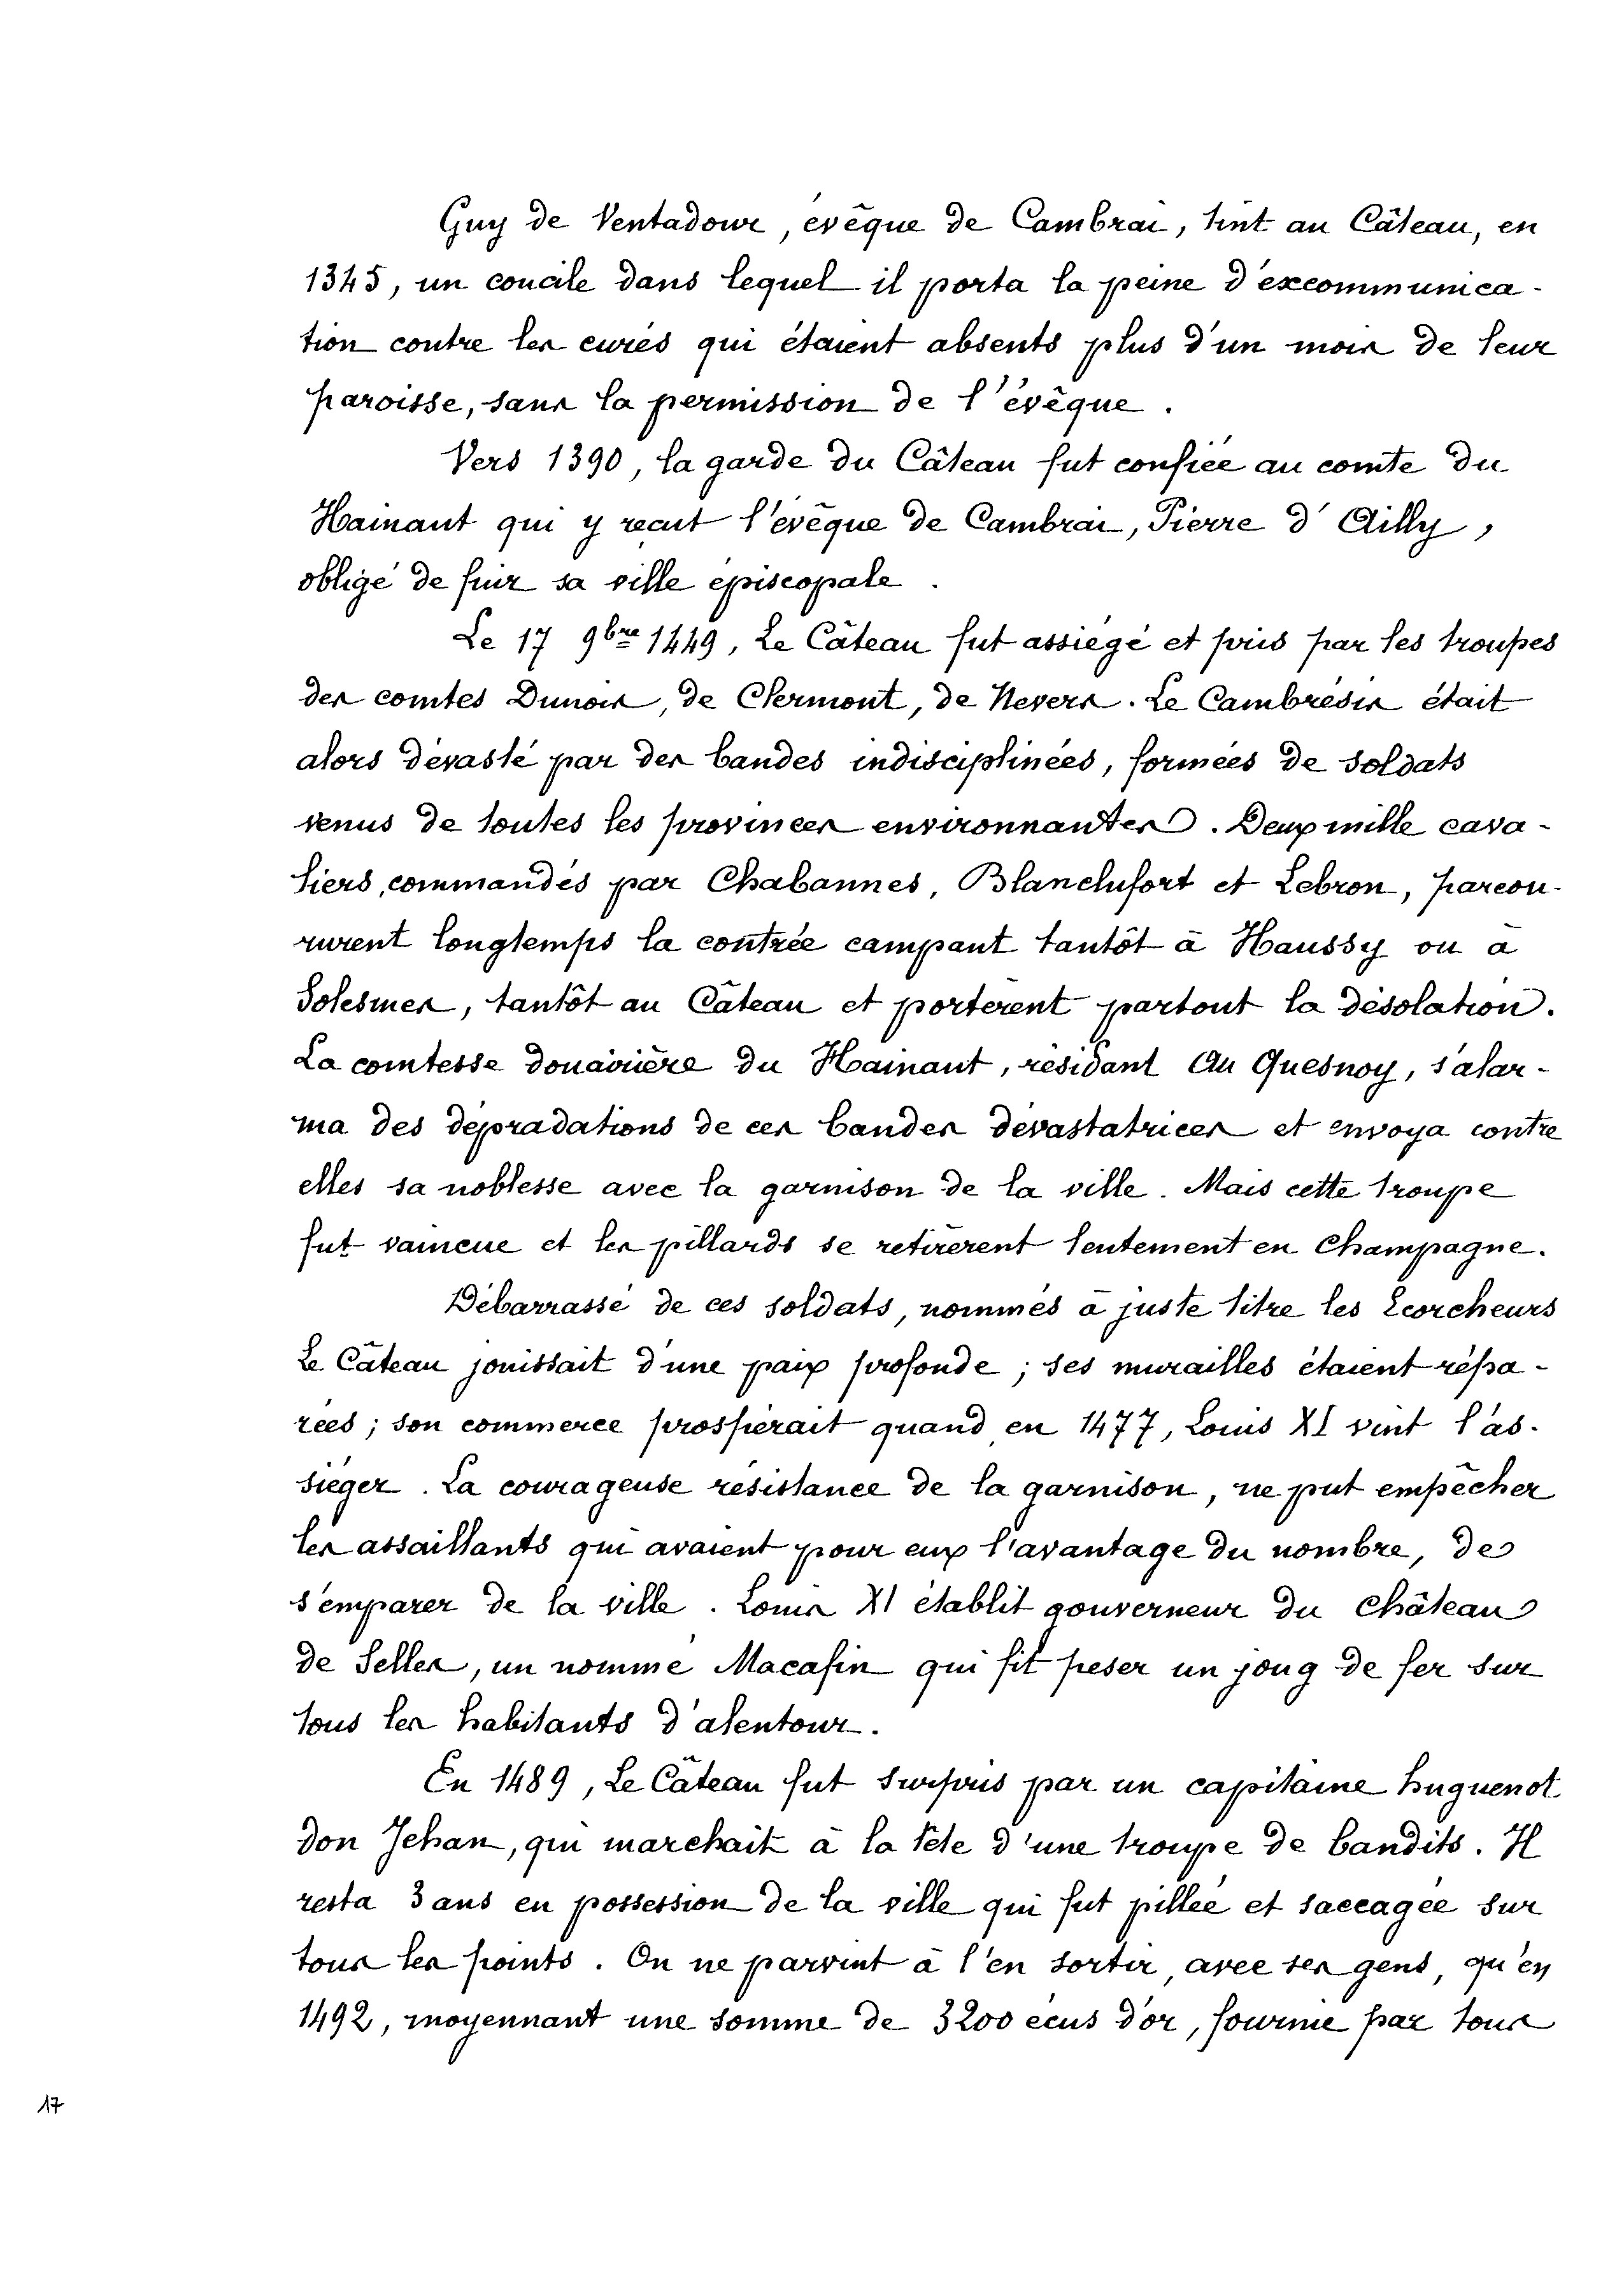 Guy de Ventadour, évêque de Cambrai, tint au Câteau, en
1345, un concile dans lequel il porta la peine d'excommunica-
tion contre les curés qui étaient absents plus d'un mois de leur
paroisse, sans la permission de l'évêque.
Vers 1390, la garde du Câteau fut confiée au comte du
Hainaut qui y reçut l'évêque de Cambrai, Pierre d'Ailly,
obligé de fuir sa ville épiscopale.
Le 17 9bre 1449, Le Câteau fut assiégé et pris par les troupes
des comtes Dunois, de Clermont, de Nevers. Le Cambrésis était
alors dévasté par des bandes indisciplinées, formées de soldats
venus de toutes les provinces environnantes. Deux mille cava-
liers, commandés par Chabannes, Blanchefort et Lebron, parcou-
rurent longtemps la contrée campant tantôt à Haussy ou à
Solesmes, tantôt au Câteau et portèrent partout la désolation.
La comtesse douairière du Hainaut, résidant au Quesnoy, s'alar-
ma des dépradations de ces bandes dévastatrices et envoya contre
elles sa noblesse avec la garnison de la ville. Mais cette troupe
fut vaincue et les pillards se retirèrent lentement en Champagne.
Débarrassé de ces soldats, nommés à juste titre les Ecorcheurs
Le Câteau jouissait d'une paix profonde ; ses murailles étaient répa-
rées ; son commerce prospérait quand en 1477, Louis XI vint l'as-
siéger. La courageuse résistance de la garnison, ne put empêcher
les assaillants qui avaient pour eux l'avantage du nombre, de
s'emparer de la ville. Louis XI établit gouverneur du château
de Selles, un nommé Macafin qui fit peser un joug de fer sur
tous les habitants d'alentour.
En 1489, Le Câteau fut surpris par un capitaine huguenot
don Jehan, qui marchait à la tête d'une troupe de bandits. Il
resta 3 ans en possession de la ville qui fut pillée et saccagée sur
tous les points. On ne parvint à l'en sortir, avec ses gens, qu'en
1492, moyennant une somme de 3200 écus d'or, fournie par tous
17